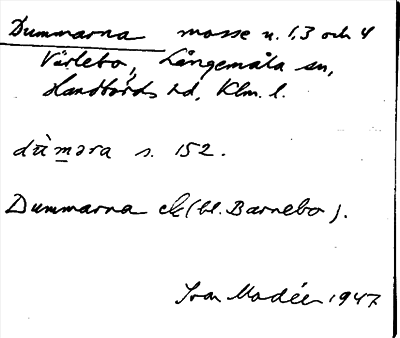 Dummarna mosse u. 1, 3 och 4
Värlebo, Långemåla sn,
Handbörds hd, Klm. l.
dù̀m̲əra s. 152.
Dummarna ek (bl. Barnebo).
Ivar Modéer 1947